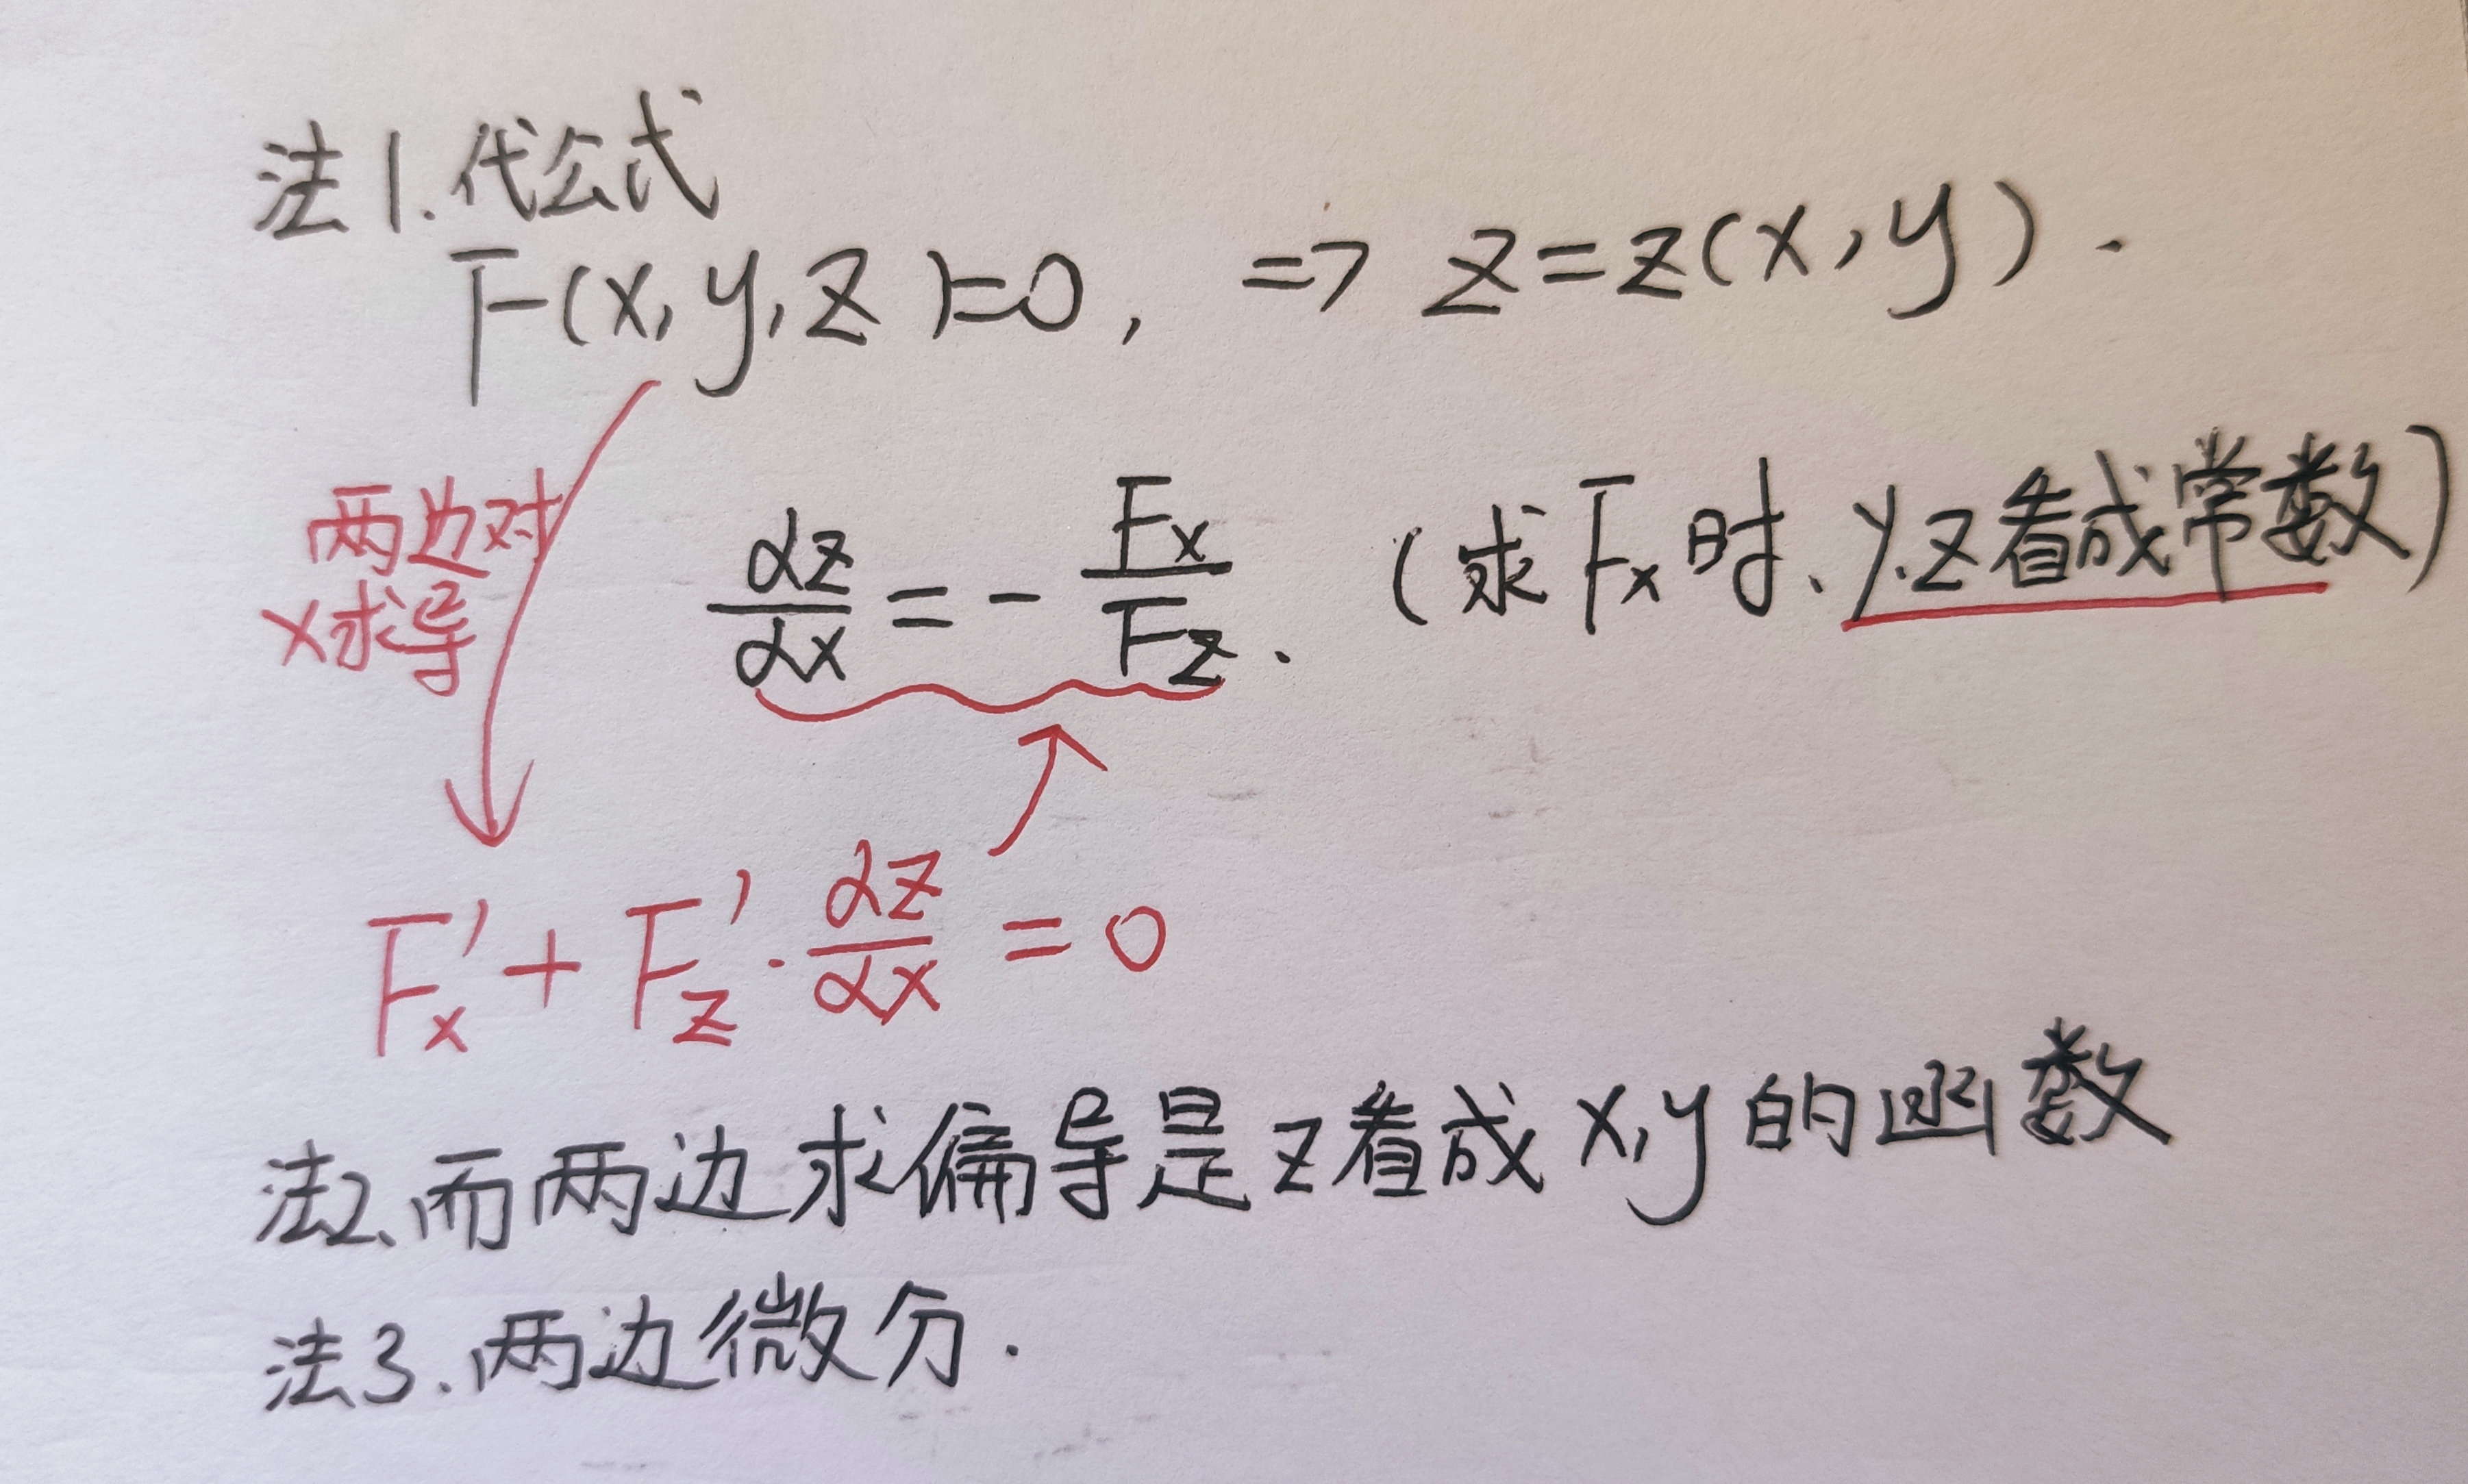 法1.代公式
F(x,y,z)=0, => z=z(x,y).
两边对
x求导
αz/αx = - Fx/Fz. (求Fx时、y.z看成常数)
Fx' + Fz' · αz/αx = 0
法2、而两边求偏导是z看成x,y的函数
法3.两边微分.